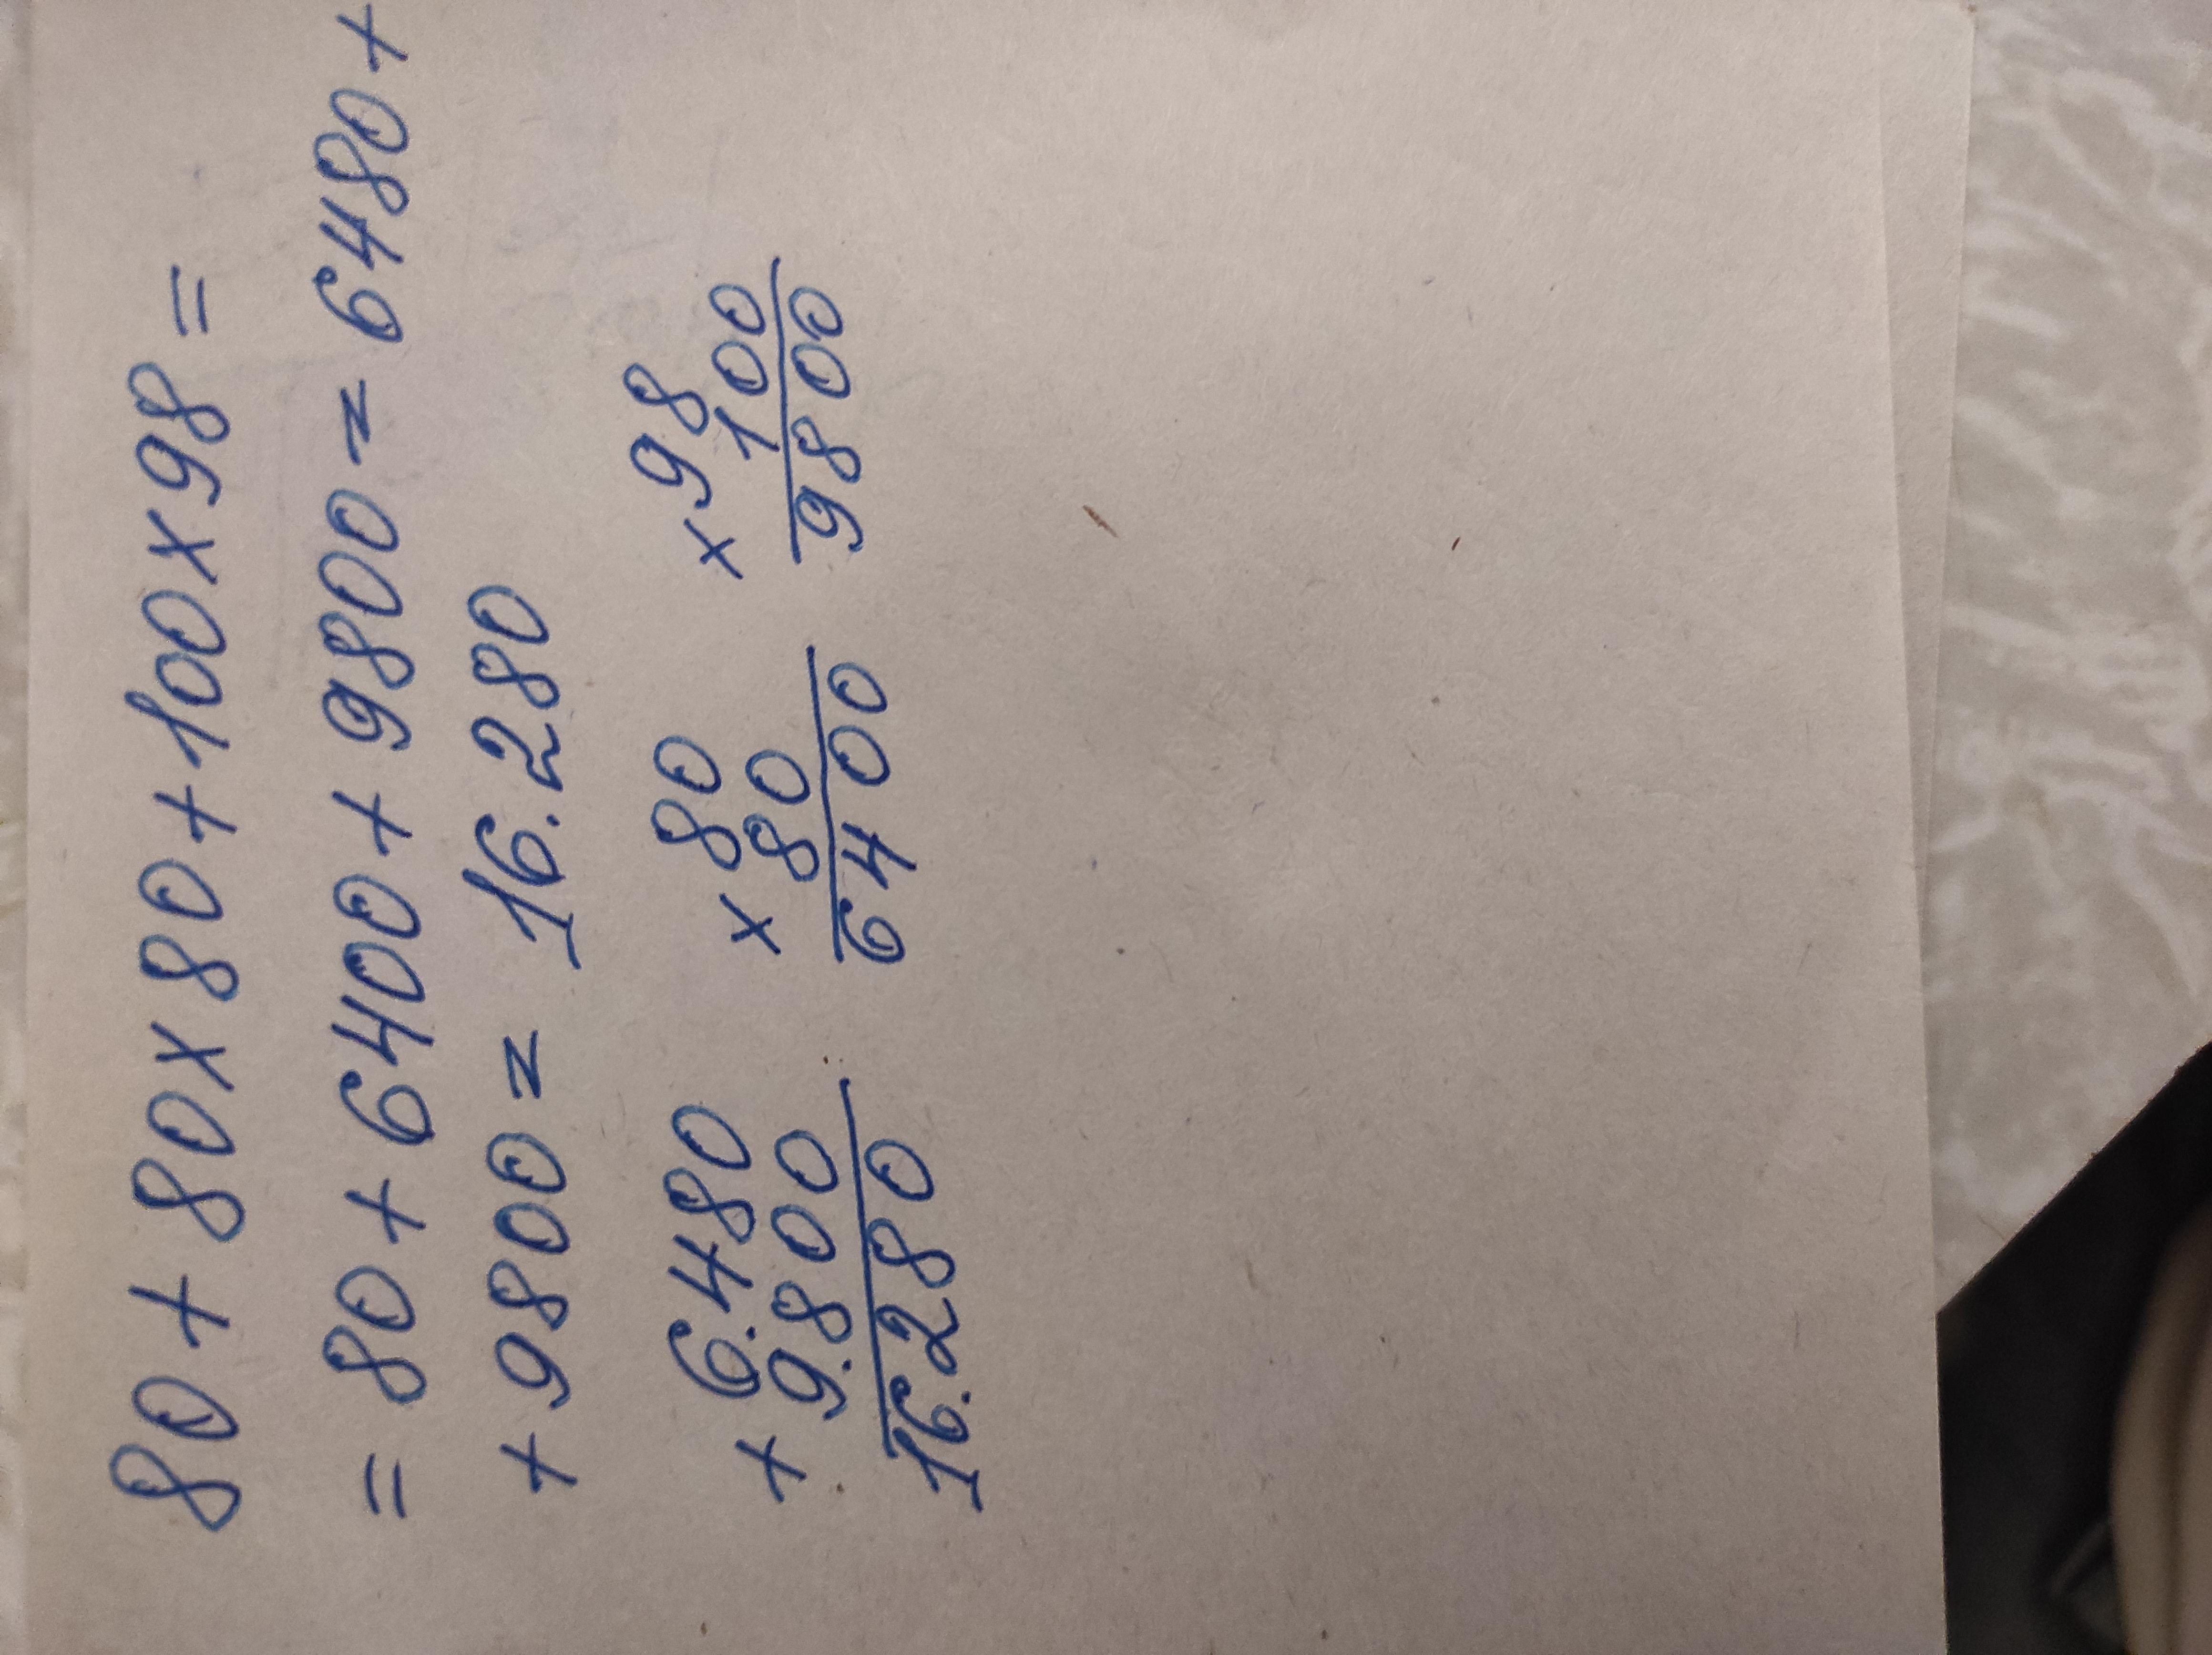 80 + 80 x 80 + 100 x 98 =
= 80 + 6400 + 9800 = 6480 +
+ 9800 = 16.280
+ 6.480
9.800
16.280
x 80
80
6400
x 98
100
9800